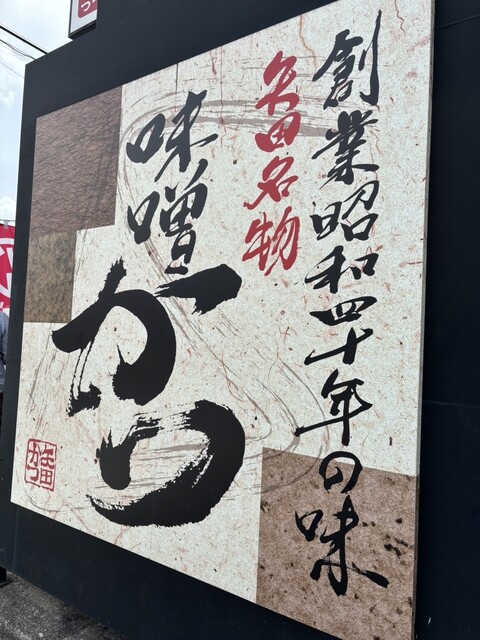 創業昭和四十年の味
矢田名物
味噌かつ
矢田かつ